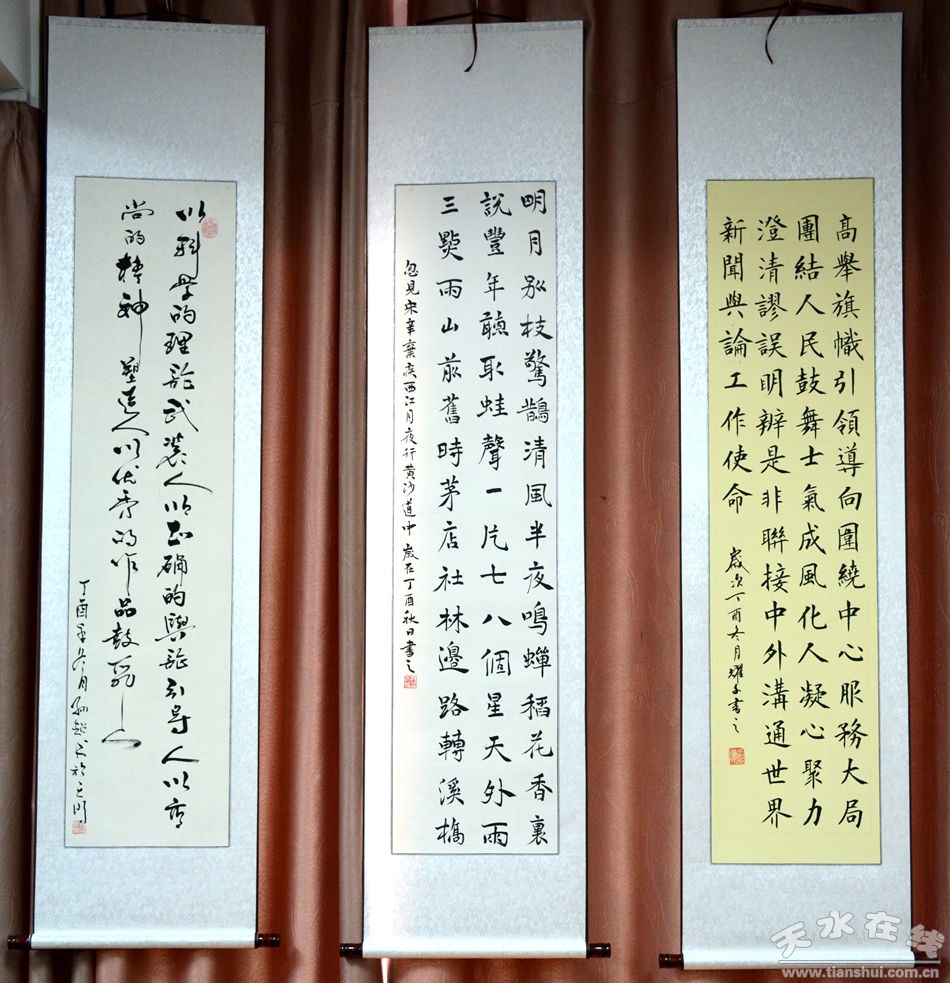 高舉旗幟引領導向圍繞中心服務大局
團結人民鼓舞士氣成風化人凝心聚力
澄清謬誤明辨是非聯接中外溝通世界
新聞與論工作使命
歲次丁酉冬月耀書之
明月別枝驚鵲清風半夜鳴蟬稻花香裏
説豐年聽取蛙聲一片七八個星天外雨
三點雨山前舊時茅店社林邊路轉溪橋
忽見宋辛棄疾西江月夜行黄沙道中 歲在丁酉秋日書之
以科学的理论武装人以正确的舆论引导人以高
尚的精神 塑造人以优秀的作品鼓舞人
丁酉年冬月
天水在线
www.tianshui.com.cn